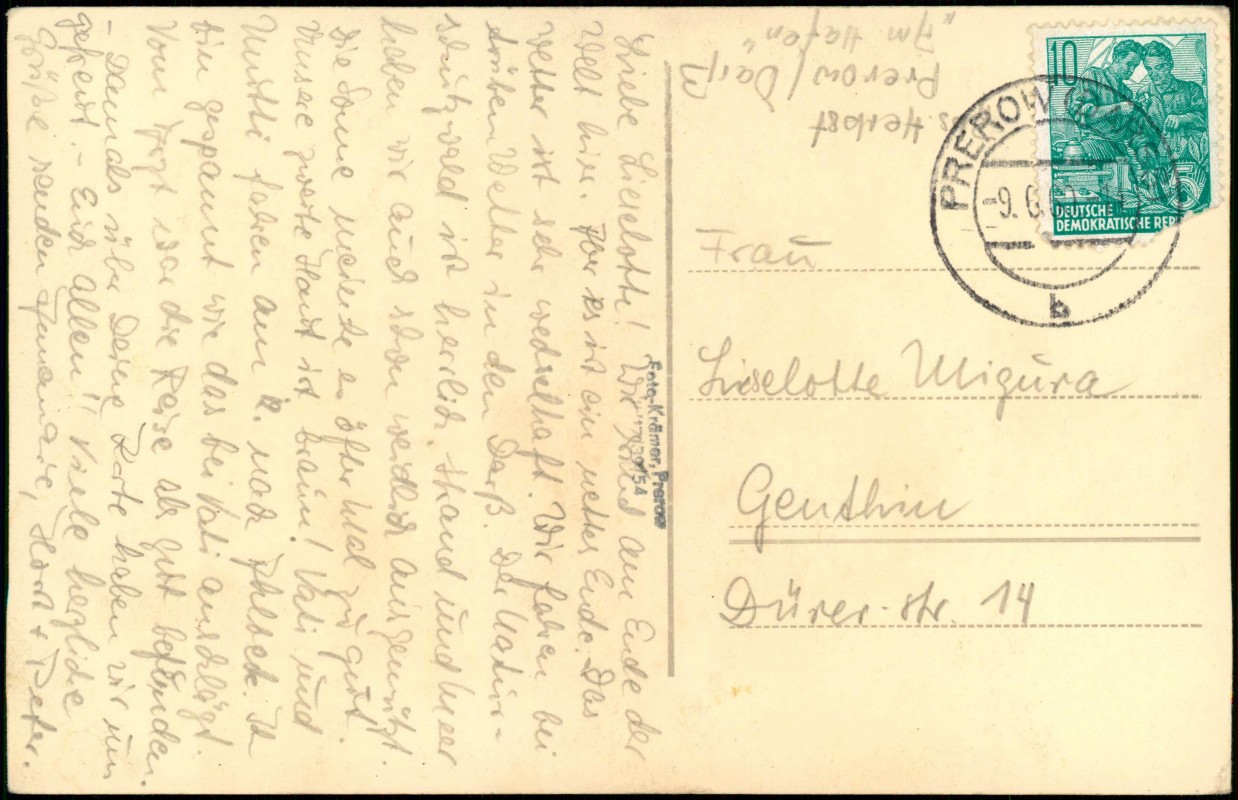 Herbst
Prerow/Darß
"Am Hafen"
10
DEUTSCHE
DEMOKRATISCHE REP
PREROW
-9. 6.
b
Liebe Lieselotte! Wir sind am Ende der
Welt hier. Aber es ist ein nettes Ende. Das
Wetter ist sehr wechselhaft. Wir fahren bei
trüben Wetter in den Darß. Der Natur-
schutzwald ist herrlich. Strand und Meer
haben wir auch schon weidlich ausgenützt.
Die Sonne meinte es öfter mal zu gut.
Unsere zweite Haut ist braun! Vati und
Mutti fahren am 12. nach. Ich
bin gespannt wie das bei Vati anschlägt.
Vom war die Reise als gut befunden.
- Damals über Deine Karte haben wir uns
gefreut. - Euch allen!! Viele herzliche
Grüße senden Annemarie, Horst + Peter.
Foto-Krämer, Prerow
Frau
Lieselotte Migura
Genthin
Dürer-str. 14